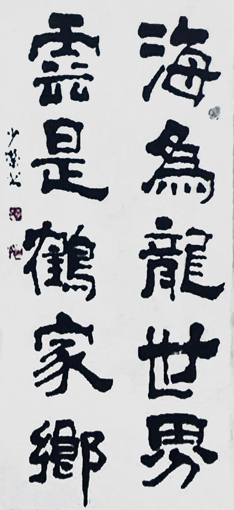 海為龍世界
雲是鶴家鄉
少蘭书